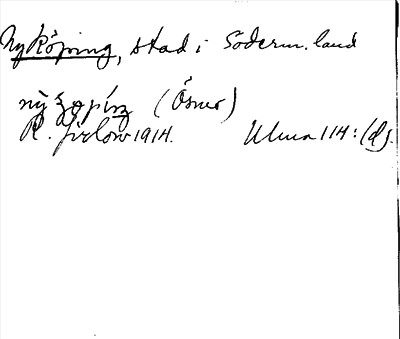 Nyköping, stad i Söderm. land
(Ösmo)
R. Jirlow 1914. Ulma 114:(d).